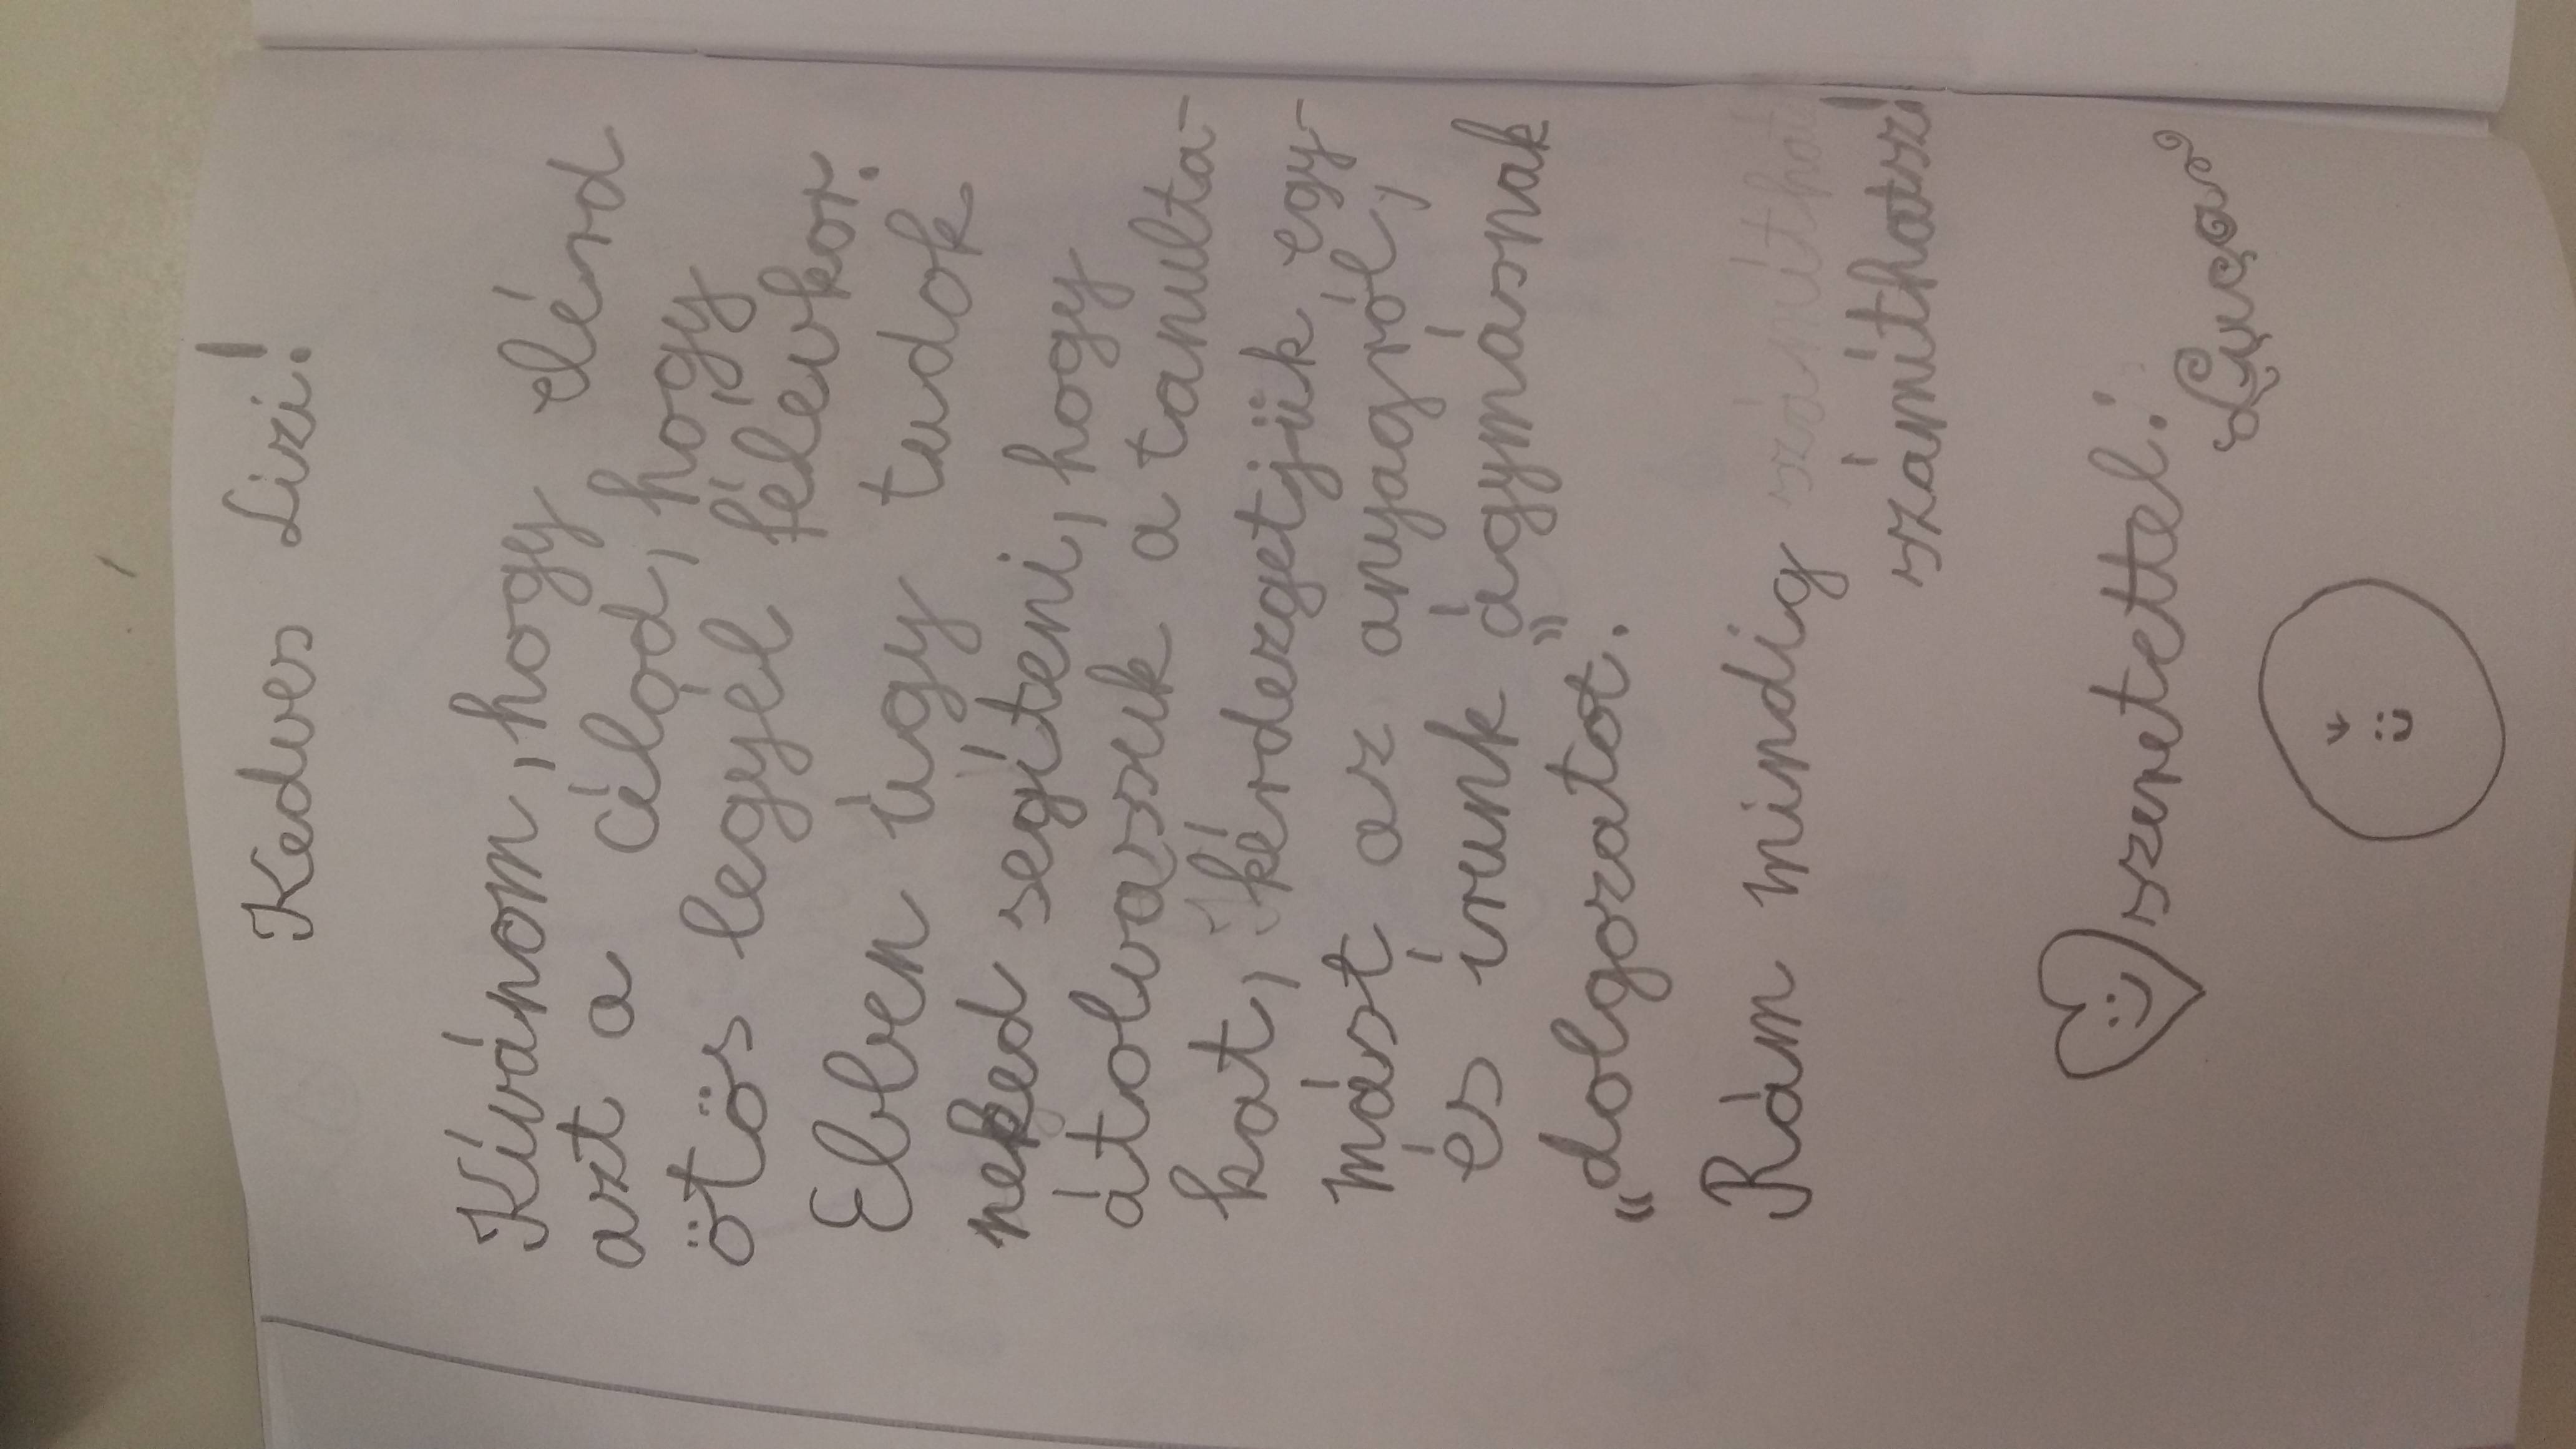 Kedves Lizi!
Kívánom, hogy elérd
azt a célod, hogy
ötös legyél félévkor.
Ebben úgy tudok
neked segíteni, hogy
átolvassuk a tanulta-
kat, kérdezgetjük egy-
mást az anyagról,
és írunk „ágymásnak
„dolgozatot.
Rám mindig
számíthatsz!
szeretettel:
Luca